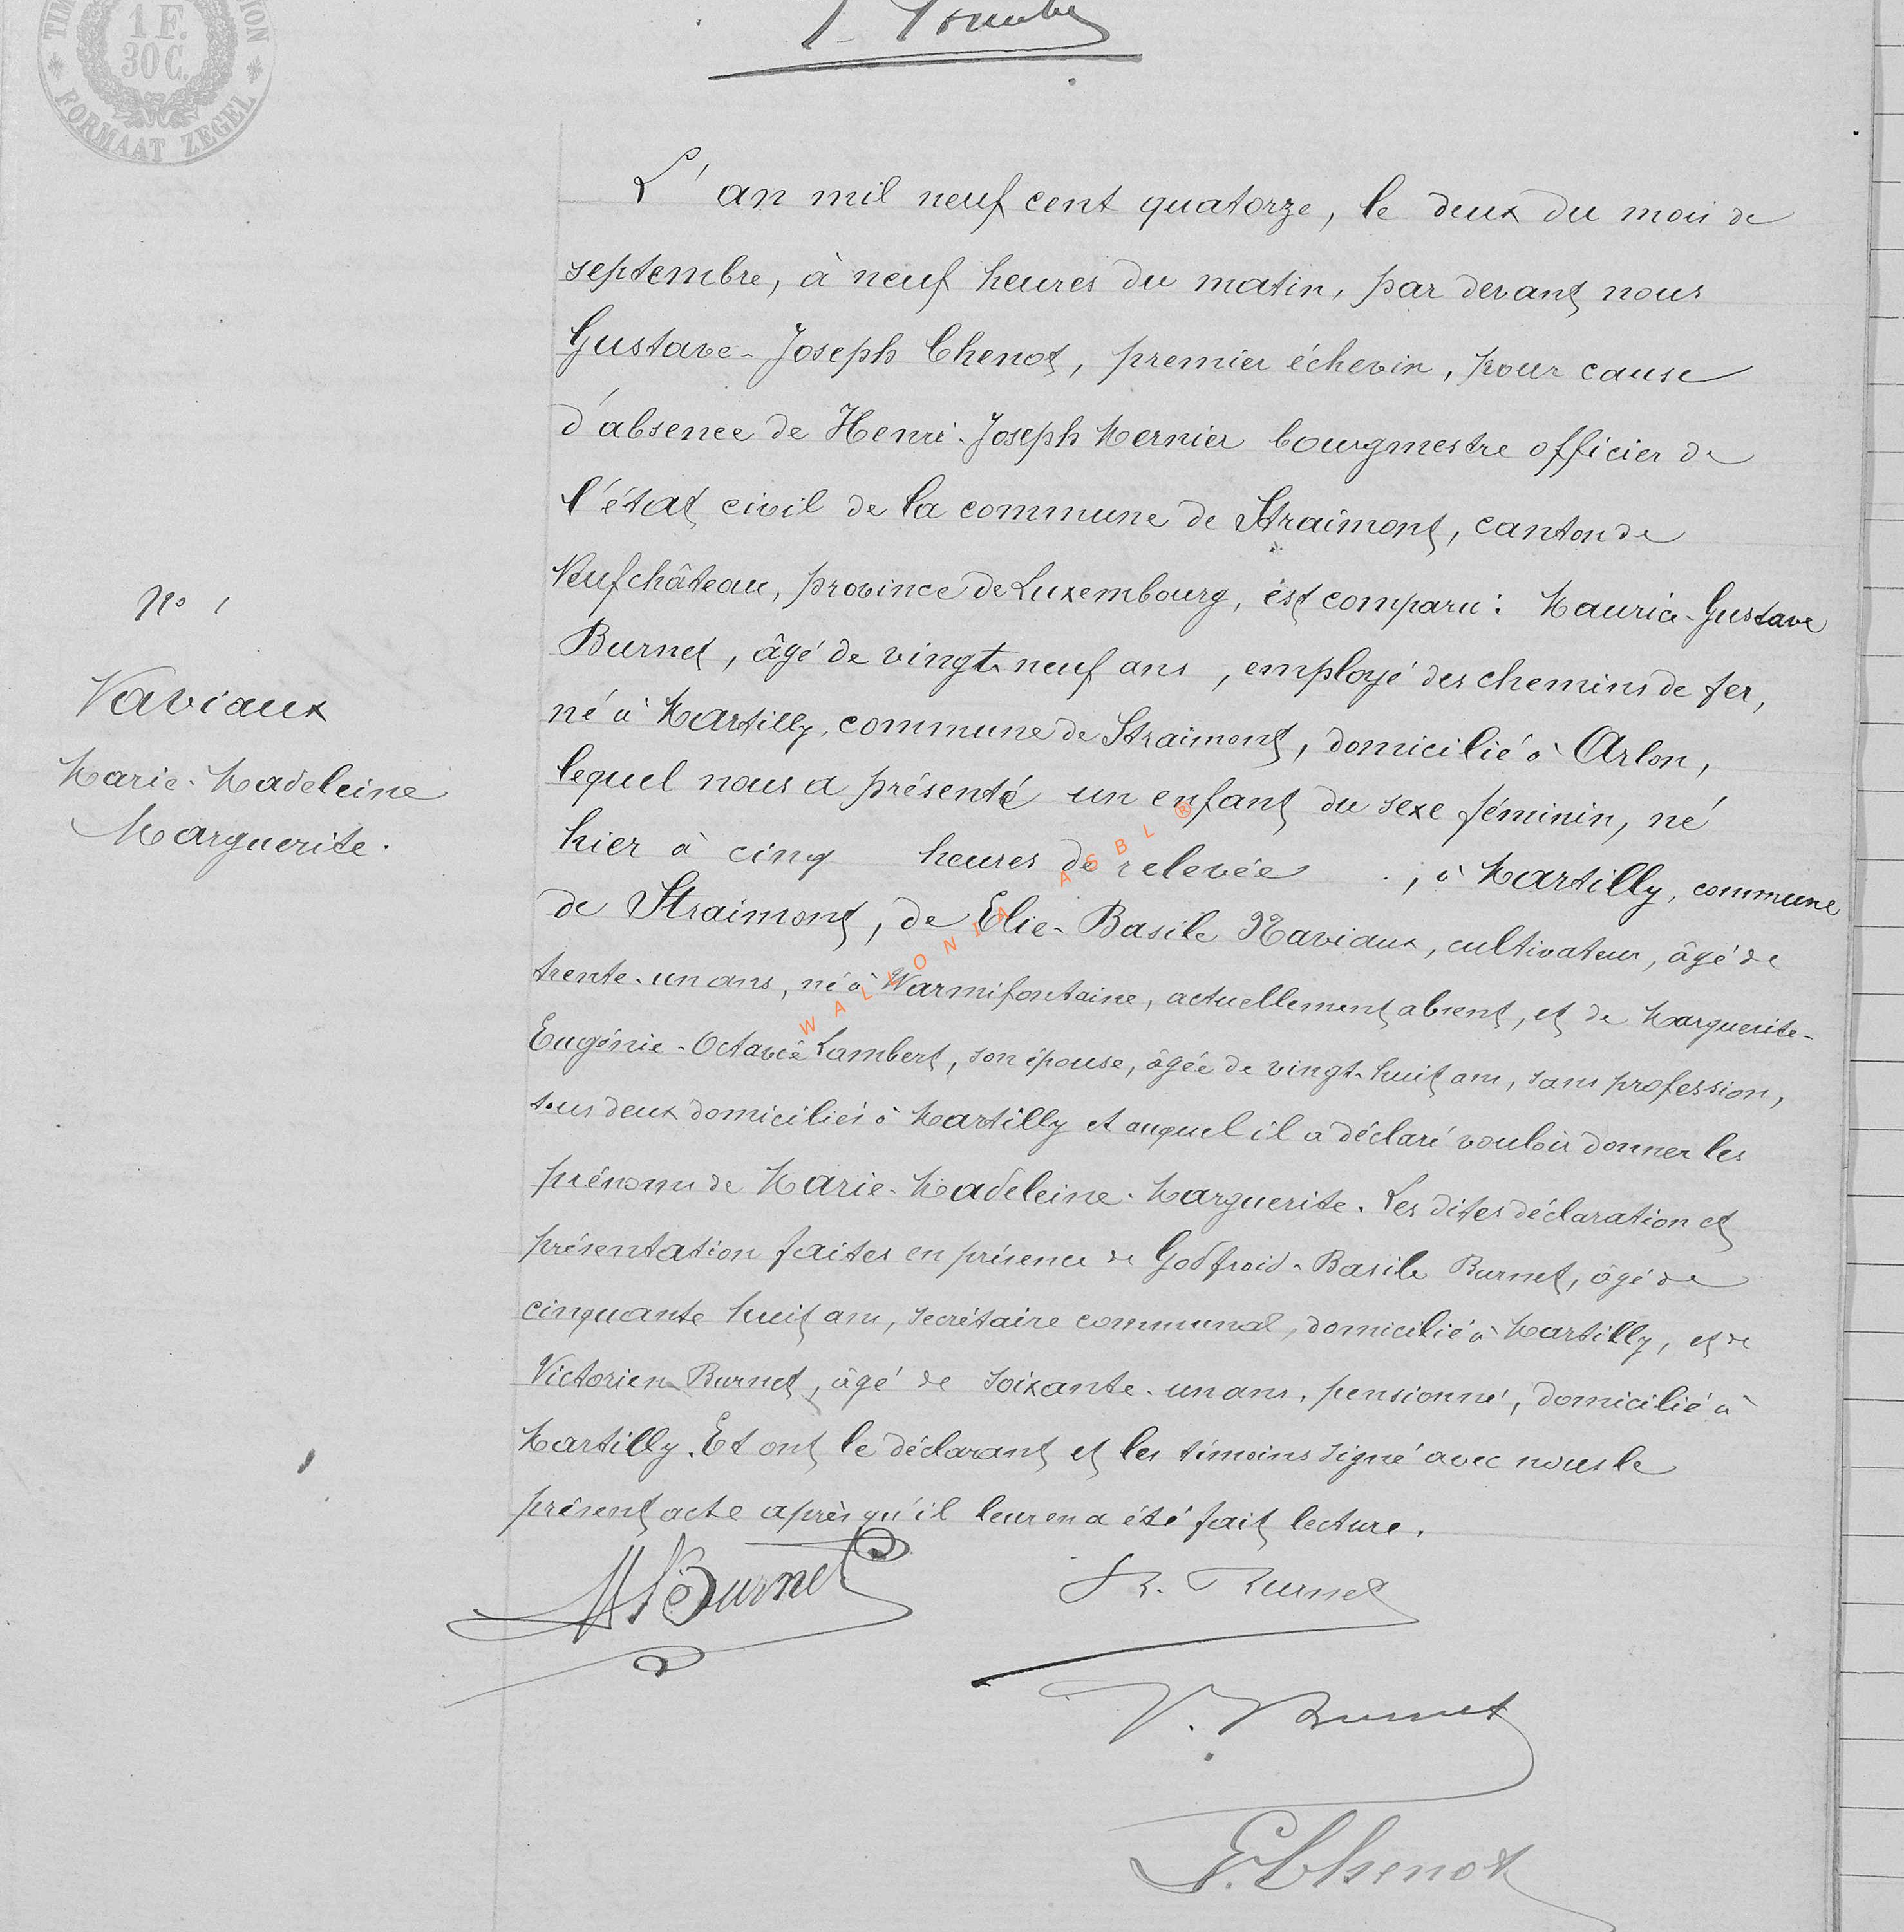 1 F.
30 C.
FORMAAT ZEGEL
L'an mil neuf cent quatorze, le deux du mois de
septembre, à neuf heures du matin, par devant nous
Gustave-Joseph Chenot, premier échevin, pour cause
d'absence de Henri-Joseph Mernier bourgmestre officier de
l'état civil de la commune de Straimont, canton de
Neufchâteau, province de Luxembourg, est comparu: Maurice-Gustave
Burnet, âgé de vingt-neuf ans, employé des chemins de fer,
né à Martilly, commune de Straimont, domicilié à Arlon,
lequel nous a présenté un enfant du sexe féminin, né
hier à cinq heures de relevée, à Martilly, commune
de Straimont, de Elie-Basile Naviaux, cultivateur, âgé de
trente-un ans, né à Warmifontaine, actuellement absent, et de Marguerite-
Eugénie-Octavie Lambert, son épouse, âgée de vingt-huit ans, sans profession,
tous deux domiciliés à Martilly et auquel il a déclaré vouloir donner les
prénoms de Marie-Madeleine-Marguerite. Les dites déclaration et
présentation faites en présence de Godfroid-Basile Burnet, âgé de
cinquante huit ans, secrétaire communal, domicilié à Martilly, et de
Victorien Burnet, âgé de soixante-un ans, pensionné, domicilié à
Martilly. Et ont le déclarant et les témoins signé avec nous le
présent acte après qu'il leur en a été fait lecture.
No 1
Naviaux
Marie-Madeleine
Marguerite.
Burnet
Burnet
V. Burnet
G. Chenot
WALLONIA ASBL ®